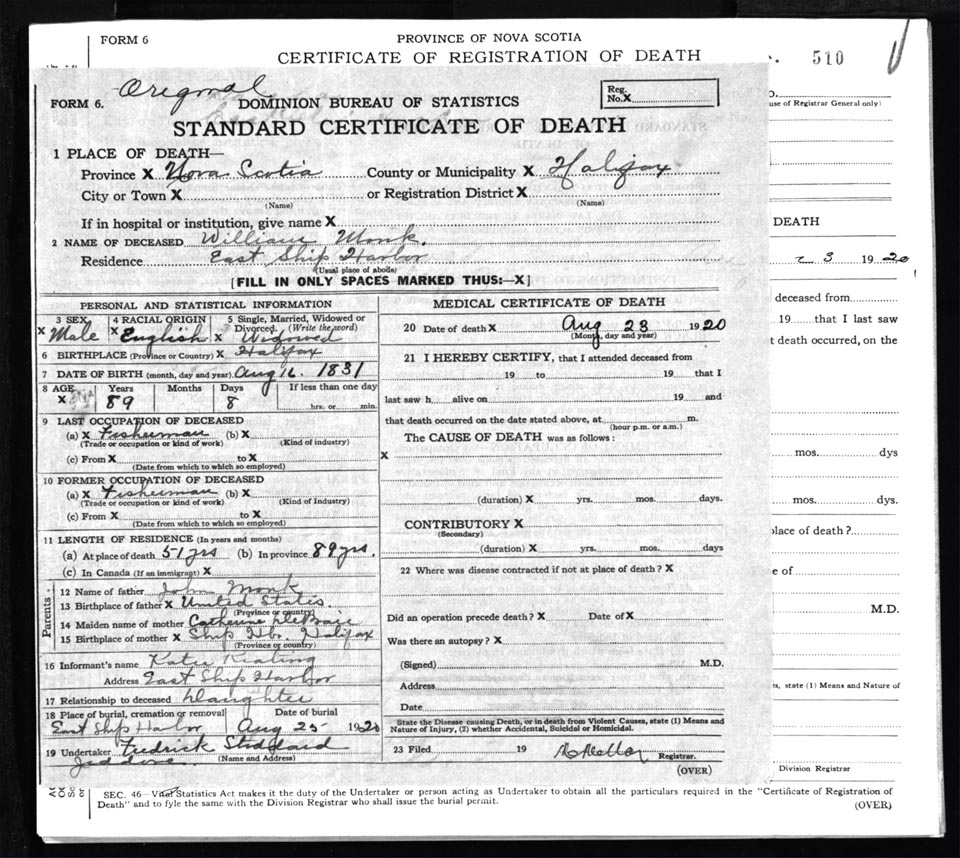 FORM 6
PROVINCE OF NOVA SCOTIA
CERTIFICATE OF REGISTRATION OF DEATH
510
Original
FORM 6.
DOMINION BUREAU OF STATISTICS
Reg. No. X
use of Registrar General only)
STANDARD CERTIFICATE OF DEATH
1 PLACE OF DEATH—
Province X Nova Scotia County or Municipality X Halifax
City or Town X or Registration District X
(Name) (Name)
If in hospital or institution, give name X
2 NAME OF DECEASED William Monk.
Residence East Ship Harbor
(Usual place of abode)
[FILL IN ONLY SPACES MARKED THUS:—X]
PERSONAL AND STATISTICAL INFORMATION
3 SEX 4 RACIAL ORIGIN 5 Single, Married, Widowed or Divorced. (Write the word)
X Male X English X Widowed
6 BIRTHPLACE (Province or Country) X Halifax
7 DATE OF BIRTH (month, day and year) Aug 16. 1831
8 AGE Years Months Days If less than one day
X 89 8 hrs. or min.
9 LAST OCCUPATION OF DECEASED
(a) X Fisherman (b) X
(Trade or occupation or kind of work) (Kind of industry)
(c) From X to X
(Date from which to which so employed)
10 FORMER OCCUPATION OF DECEASED
(a) X Fisherman (b) X
(Trade or occupation or kind of work) (Kind of Industry)
(c) From X to X
(Date from which to which so employed)
11 LENGTH OF RESIDENCE (In years and months)
(a) At place of death 51 yrs (b) In province 89 yrs.
(c) In Canada (If an immigrant) X
Parents
12 Name of father John Monk
13 Birthplace of father X United States.
(Province or country)
14 Maiden name of mother Catherine
15 Birthplace of mother X Ship Hbr. Halifax
(Province or country)
16 Informant's name Katie Keating
Address East Ship Harbor
17 Relationship to deceased Daughter
18 Place of burial, cremation or removal Date of burial
East Ship Harbor Aug 25 1920
19 Undertaker Fredrick Stoddard
Jeddore. (Name and Address)
MEDICAL CERTIFICATE OF DEATH
20 Date of death X Aug 23 1920
(Month, day and year)
21 I HEREBY CERTIFY, that I attended deceased from
19 to 19 that I
last saw h alive on 19 and
that death occurred on the date stated above, at m.
(hour p.m. or a.m.)
The CAUSE OF DEATH was as follows:
X
(duration) X yrs. mos. days.
CONTRIBUTORY X
(Secondary)
(duration) X yrs. mos. days
22 Where was disease contracted if not at place of death? X
Did an operation precede death? X Date of X
Was there an autopsy? X
(Signed) M.D.
Address
Date
State the Disease causing Death, or in death from Violent Causes, state (1) Means and
Nature of Injury, (2) whether Accidental, Suicidal or Homicidal.
23 Filed 19 Registrar.
(OVER)
DEATH
23 1920
deceased from
19 that I last saw
t death occurred, on the
mos. dys
mos. dys.
place of death?
e of
M.D.
state (1) Means and Nature of
Division Registrar
SEC. 46—Vital Statistics Act makes it the duty of the Undertaker or person acting as Undertaker to obtain all the particulars required in the "Certificate of Registration of
Death" and to fyle the same with the Division Registrar who shall issue the burial permit.
(OVER)